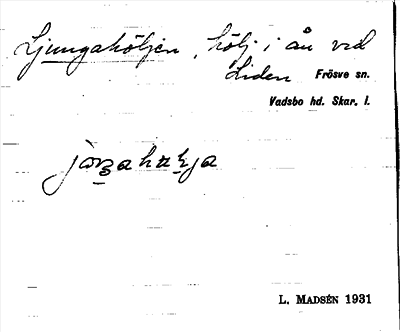 Ljungahöljen, hölj i ån vid
Liden Frösve sn.
Vadsbo hd. Skar. l.
L. MADSÉN 1931